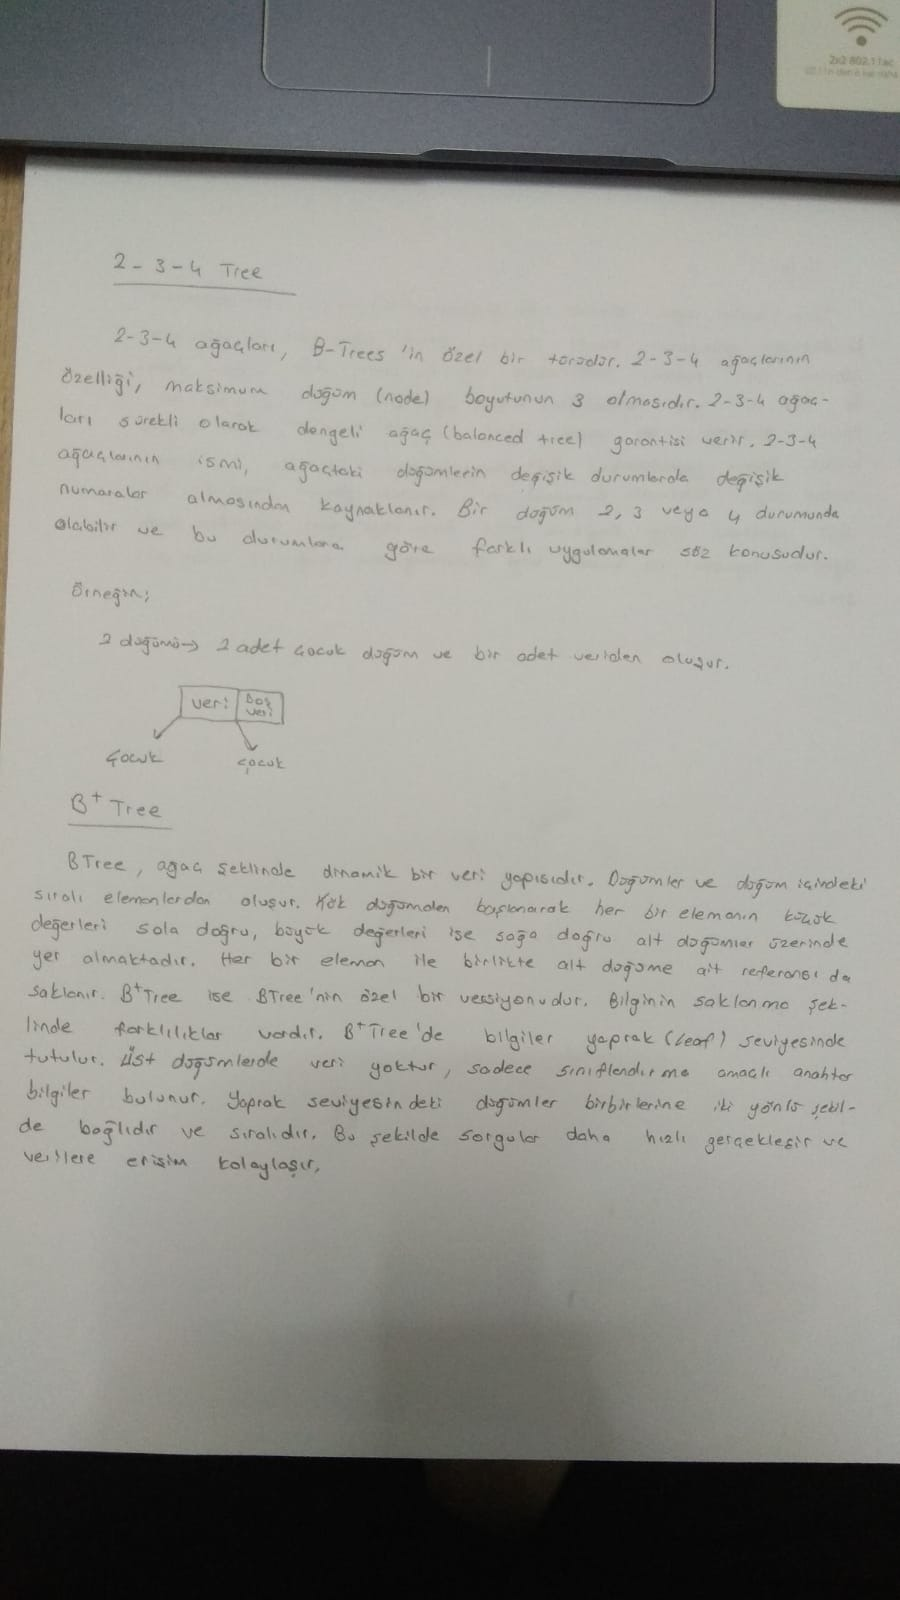 2x2 802.11ac
2-3-4 Tree
2-3-4 ağaçları, B-Trees 'in özel bir türüdür. 2-3-4 ağaçlarının
özelliği, maksimum düğüm (node) boyutunun 3 olmasıdır. 2-3-4 ağaç-
ları sürekli olarak dengeli ağaç (balanced tree) garantisi verir. 2-3-4
ağaçlarının ismi, ağaçtaki düğümlerin değişik durumlarda değişik
numaralar almasından kaynaklanır. Bir düğüm 2, 3 veya 4 durumunda
olabilir ve bu durumlara göre farklı uygulamalar söz konusudur.
Örneğin;
2 düğümü→ 2 adet çocuk düğüm ve bir adet veriden oluşur.
veri boş veri
çocuk çocuk
B+ Tree
BTree, ağaç şeklinde dinamik bir veri yapısıdır. Düğümler ve düğüm içindeki
sıralı elemanlardan oluşur. Kök düğümden başlanarak her bir elemanın küçük
değerleri sola doğru, büyük değerleri ise sağa doğru alt düğümler üzerinde
yer almaktadır. Her bir eleman ile birlikte alt düğüme ait referansı da
saklanır. B+Tree ise BTree'nin özel bir versiyonudur. Bilginin saklanma şek-
linde farklılıklar vardır. B+Tree'de bilgiler yaprak (leaf) seviyesinde
tutulur. Üst düğümlerde veri yoktur, sadece sınıflendirme amaçlı anahtar
bilgiler bulunur. Yaprak seviyesindeki düğümler birbirlerine iki yönlü şekil-
de bağlıdır ve sıralıdır. Bu şekilde sorgular daha hızlı gerçekleşir ve
verilere erişim kolaylaşır,